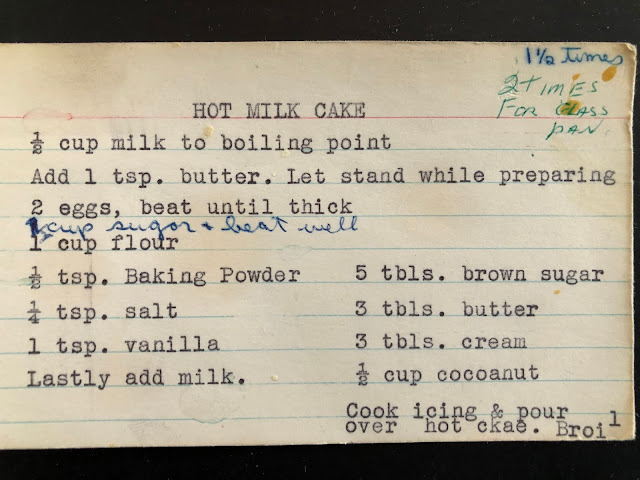 1½ times
2 TIMES
FOR GLASS
PAN.
HOT MILK CAKE
½ cup milk to boiling point
Add 1 tsp. butter. Let stand while preparing
2 eggs, beat until thick
1 cup sugar & beat well
1 cup flour
½ tsp. Baking Powder
¼ tsp. salt
1 tsp. vanilla
Lastly add milk.
5 tbls. brown sugar
3 tbls. butter
3 tbls. cream
½ cup cocoanut
Cook icing & pour
over hot ckae. Broil